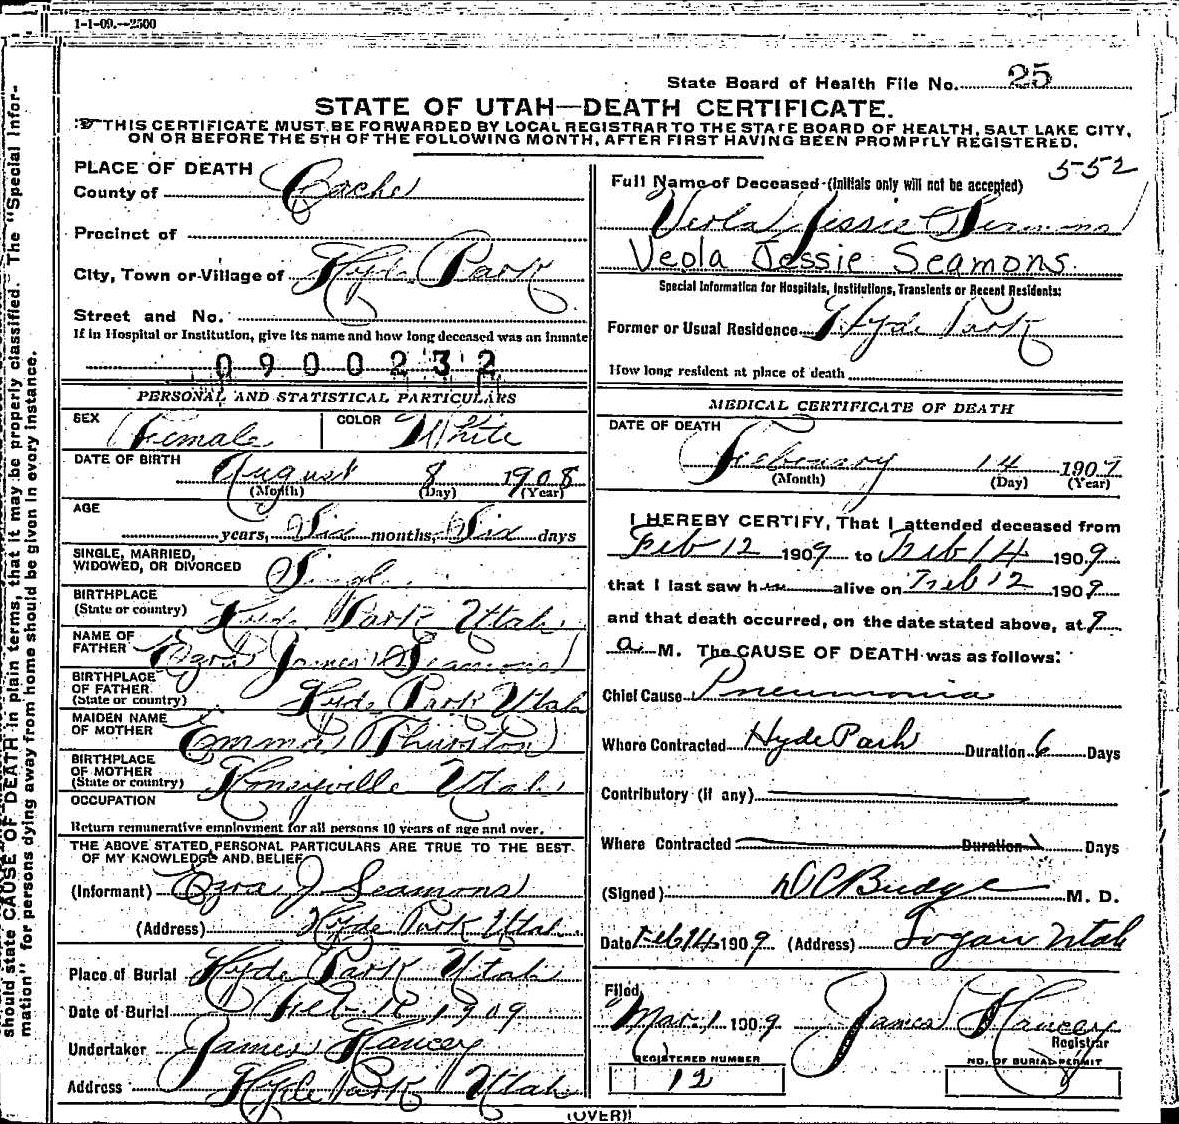 1-1-09.--2500
State Board of Health File No. 25
STATE OF UTAH—DEATH CERTIFICATE.
THIS CERTIFICATE MUST BE FORWARDED BY LOCAL REGISTRAR TO THE STATE BOARD OF HEALTH, SALT LAKE CITY,
ON OR BEFORE THE 5TH OF THE FOLLOWING MONTH, AFTER FIRST HAVING BEEN PROMPTLY REGISTERED.
552
PLACE OF DEATH
County of Cache
Precinct of
City, Town or Village of Hyde Park
Street and No.
If in Hospital or Institution, give its name and how long deceased was an inmate
0900232
PERSONAL AND STATISTICAL PARTICULARS
SEX Female COLOR White
DATE OF BIRTH August 8 1908
(Month) (Day) (Year)
AGE
years, Six months, Six days
SINGLE, MARRIED,
WIDOWED, OR DIVORCED Single
BIRTHPLACE
(State or country) Hyde Park Utah
NAME OF
FATHER Ezra James Seamons
BIRTHPLACE
OF FATHER
(State or country) Hyde Park Utah
MAIDEN NAME
OF MOTHER Emma Thurston
BIRTHPLACE
OF MOTHER
(State or country) Honeyville Utah
OCCUPATION
Return remunerative employment for all persons 10 years of age and over.
THE ABOVE STATED PERSONAL PARTICULARS ARE TRUE TO THE BEST
OF MY KNOWLEDGE AND BELIEF
(Informant) Ezra J Seamons
(Address) Hyde Park Utah
Place of Burial Hyde Park Utah
Date of Burial Feb 1909
Undertaker James Hancey
Address Hyde Park Utah
Full Name of Deceased (Initials only will not be accepted)
Veola Jessie Seamons
Veola Jessie Seamons.
Special Information for Hospitals, Institutions, Transients or Recent Residents:
Former or Usual Residence Hyde Park
How long resident at place of death
MEDICAL CERTIFICATE OF DEATH
DATE OF DEATH
February 14 1909
(Month) (Day) (Year)
I HEREBY CERTIFY, That I attended deceased from
Feb 12 1909 to Feb 14 1909
that I last saw her alive on Feb 12 1909
and that death occurred, on the date stated above, at 9
a M. The CAUSE OF DEATH was as follows:
Chief Cause Pneumonia
Where Contracted Hyde Park Duration 6 Days
Contributory (if any)
Where Contracted Duration Days
(Signed) D C Budge M. D.
Date Feb 14 1909 (Address) Logan Utah
Filed
Mar. 1 1909 James Hancey
Registrar
REGISTERED NUMBER
12
NO. OF BURIAL PERMIT
(OVER)
should state CAUSE OF DEATH in plain terms, that it may be properly classified. The "Special Infor-
mation" for persons dying away from home should be given in every instance.